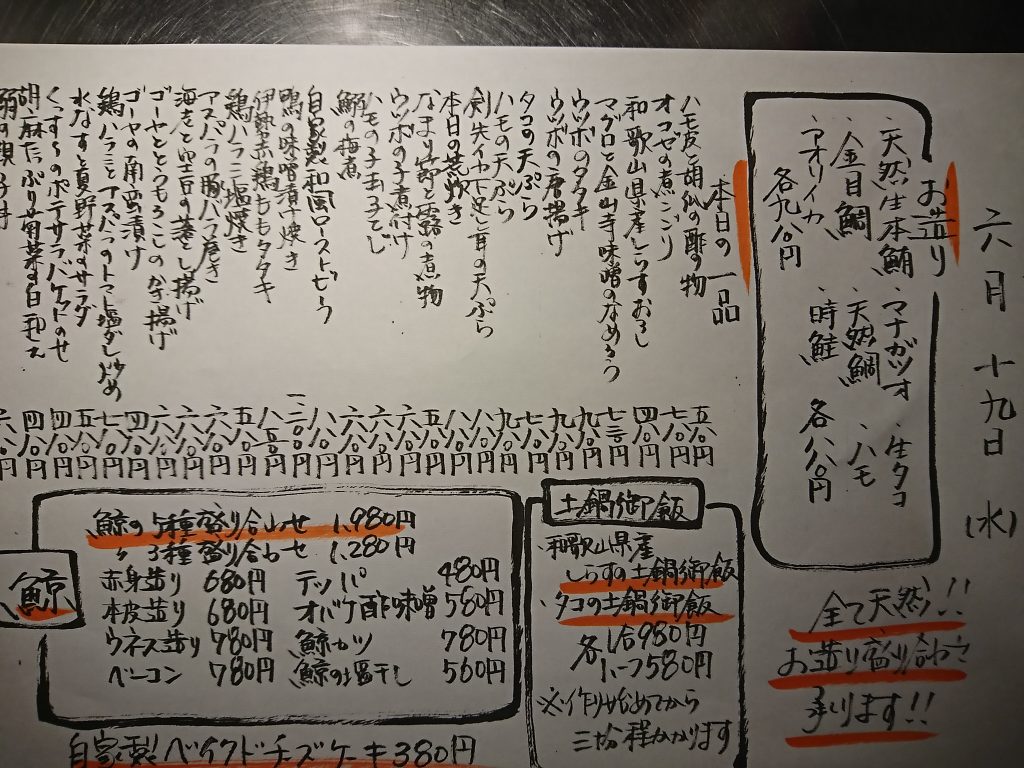 六月十九日(水)
お造り
・天然生本鮪 ・マナガツオ ・生タコ
・金目鯛 ・天然鯛 ・ハモ
・アオリイカ ・時鮭
各九八〇円 各八八〇円
全て天然!!
お造り盛り合わせ
承ります!!
本日の一品
ハモ皮と胡瓜の酢の物 五八〇円
オコゼの煮こごり 七八〇円
和歌山県産しらすおろし 四八〇円
マグロと金山寺味噌のなめろう
ウツボのタタキ 九八〇円
ウツボの唐揚げ 九八〇円
タコの天ぷら 七八〇円
ハモの天ぷら 九八〇円
剣先イカ下足と耳の天ぷら 八八〇円
本日の荒炊き 八八〇円
なまり節と蕗の煮物 五八〇円
ウツボの子煮付け 六八〇円
ハモの子玉子とじ 六八〇円
鰯の梅煮 六八〇円
自家製和風ローストビーフ
鴨の味噌漬け焼き
伊勢赤鶏ももタタキ
鶏ハラミ塩焼き
アスパラの豚バラ巻き
海老と空豆の落とし揚げ
ゴーヤととうもろこしのかき揚げ
ゴーヤの南蛮漬け
鶏ハラミとアスパラのトマト塩ダレ炒め
水なすと夏野菜のサラダ
くっすんのポテサラバケットのせ
胡麻たっぷり
土鍋御飯
和歌山県産
しらすの土鍋御飯
タコの土鍋御飯
各1合980円
1.5〜580円
※作り始めてから
三十分程かかります
鯨
鯨の5種盛り合わせ 1,980円
〃 3種盛り合わせ 1,280円
赤身造り 680円 テッパ 480円
本皮造り 680円 オバケ酢味噌 580円
ウネス造り 780円 鯨カツ 780円
ベーコン 780円 鯨の塩干し 560円
自家製!ベイクドチーズケーキ380円